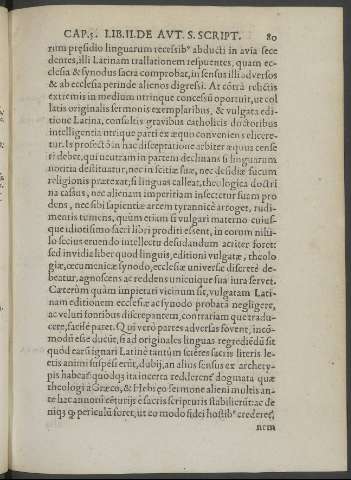 CAP.5. LIB.II.DE AVT. S. SCRIPT. 80
rum pręsidio linguarum recẽtib⁹ abducti in avia sece
dentes, illi Latinam trallationem respuentes, quam ec-
clesia & synodus sacra comprobat, in sensus illi adversos
& ab ecclesia perinde alienos digressi. At cõtrà relictis
extremis in medium utrinque concessũ oportuit, ut col
latis originalis sermonis exemplaribus, & vulgata edi-
tione Latina, consultis gravibus catholicis doctoribus
intelligentia utrique parti ex æquo conveniens elicere-
tur. Is profectò in hac disceptatione arbiter æquus cense
ri debet, qui neutram in partem declinans si linguarum
notitia destituatur, nec inscitiæ suæ, nec desidiæ fucum
religionis prætexat, si linguas calleat, theologica doctri
na cassus, nec alienam imperitiam insectetur suum pro
dens, nec sibi sapientiæ arcem tyrannicè arroget, rudi-
mentis tumens, quùm etiam si vulgari materno cuius-
que idiotismo sacri libri proditi essent, in eorum nihi-
lo secius eruendo intellectu desudandum acriter foret:
sed invidia liber quod linguis, editioni vulgatæ, theolo
giæ, œcumenicæ synodo, ecclesiæ universæ disertè de-
beatur, agnoscens ac reddens unicuique sua iura servet.
Cæterùm quàm impietati vicinum sit, vulgatam Lati-
nam editionem ecclesiæ ac synodo probatã negligere,
ac veluti fontibus discrepantem, contrariam que tradu-
cere, satis è patet. Qui verò partes adversas fovent, incõ-
modũ esse ducũt, si ad originales linguas regrediẽdũ sit
quòd earũ ignari Latinè tantùm sciẽtes sacris literis le-
ctis animi suspẽsi erũt, dubij, an alius sensus ex archety-
pis habeat quodq; ita incerta redderent dogmata quæ
theologi à Græco, & Hebręo sermone alieni multis an-
te hac annorũ cẽturijs è sacris scripturis stabilierũt: ac de
niq; periculũ foret, ut eo modo fidei hostib⁹ crederet,
nem